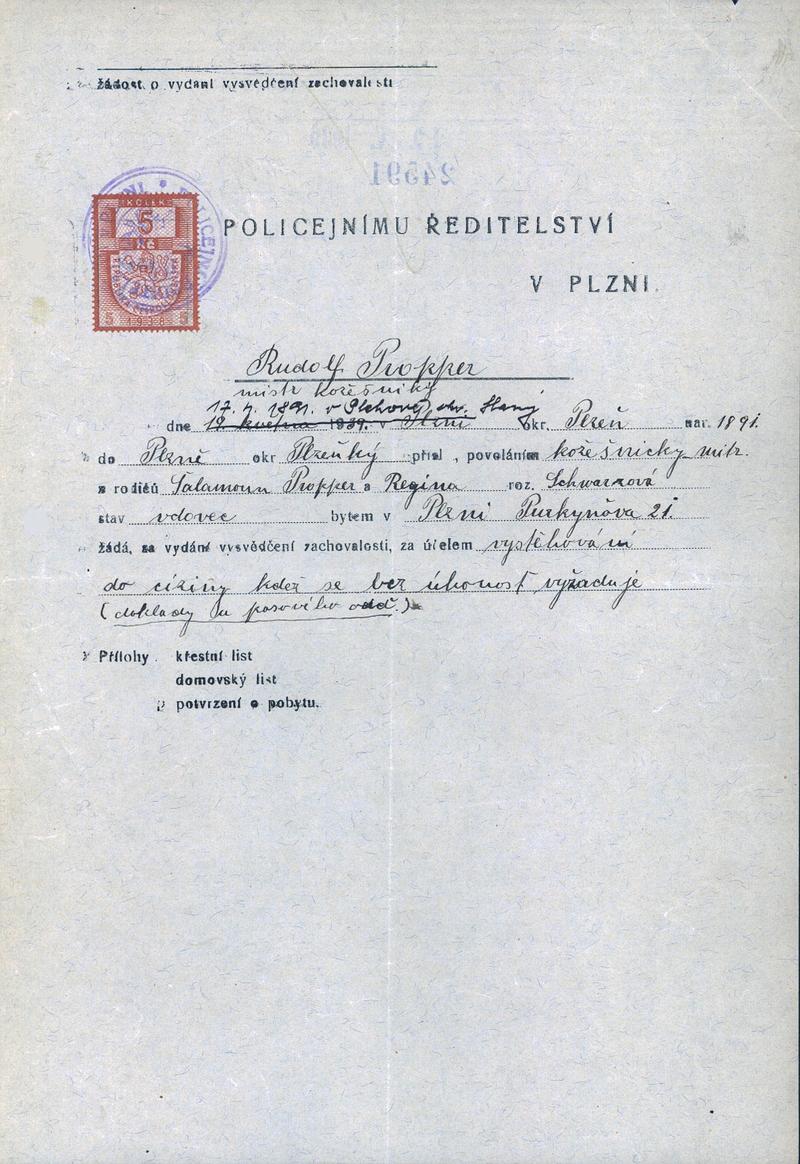 žádost o vydání vysvědčení zachovalosti
24591
KOLEK
5
POLICEJNÍMU ŘEDITELSTVÍ
V PLZNI.
5 1938 5
Rudolf Propper
mistr kožešnický
17. 4. 1891. v Plchově, okr. Slaný
dne 12 května 1939. v Plzni okr. Plzeň nar. 1891.
do Plzně okr Plzeňký přísl , povoláním kožešnický mitr.
z rodičů Salamoun Propper a Regina roz. Schwarzová
stav vdovec bytem v Plzni Purkyňova 21.
žádá, za vydání vysvědčení zachovalosti, za účelem vystěhování
do ciziny kdež se bez úhonosť vyžaduje
(doklady u pasového odd.)
Přílohy . křestní list
domovský list
potvrzení o pobytu.